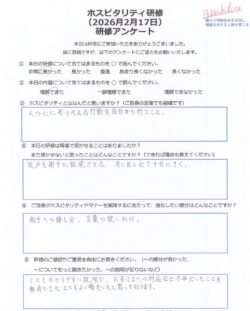 ホスピタリティ研修
(2026月2月17日)
研修アンケート
本日は研修にご参加いただきありがとうございました。
誠に恐縮ですが、以下のアンケートにご協力をお願いいたします。
① 本日の研修について当てはまるものを○で囲んでください。
非常に良かった 良かった 普通 あまり良くなかった 良くなかった
② 本日の内容について当てはまるものを○で囲んでください。
理解できた 一部理解できた 理解できなかった
③ ホスピタリティとはなんだと思いますか?(ご自身の言葉でも結構です)
人の心に寄りそえる行動を自分から行うこと。
④ 本日の研修は現場で活かせることはありましたか?
また活かせないと思ったことはなどことですか?(できれば理由も教えてください)
笑声を相手に
⑤ ご自身がホスピタリティやマナーを実践するにあたって、強化したい部分はどんなことですか?
相手への接し方、言葉の使い分け。
⑥ 研修のご感想やご意見を自由にお書きください。(~の部分が良かった、
~についてもっと聞きたかった、~の説明が足りないなど)
とても分かりやすい説明で、お客さまへの対応など不安だったことも